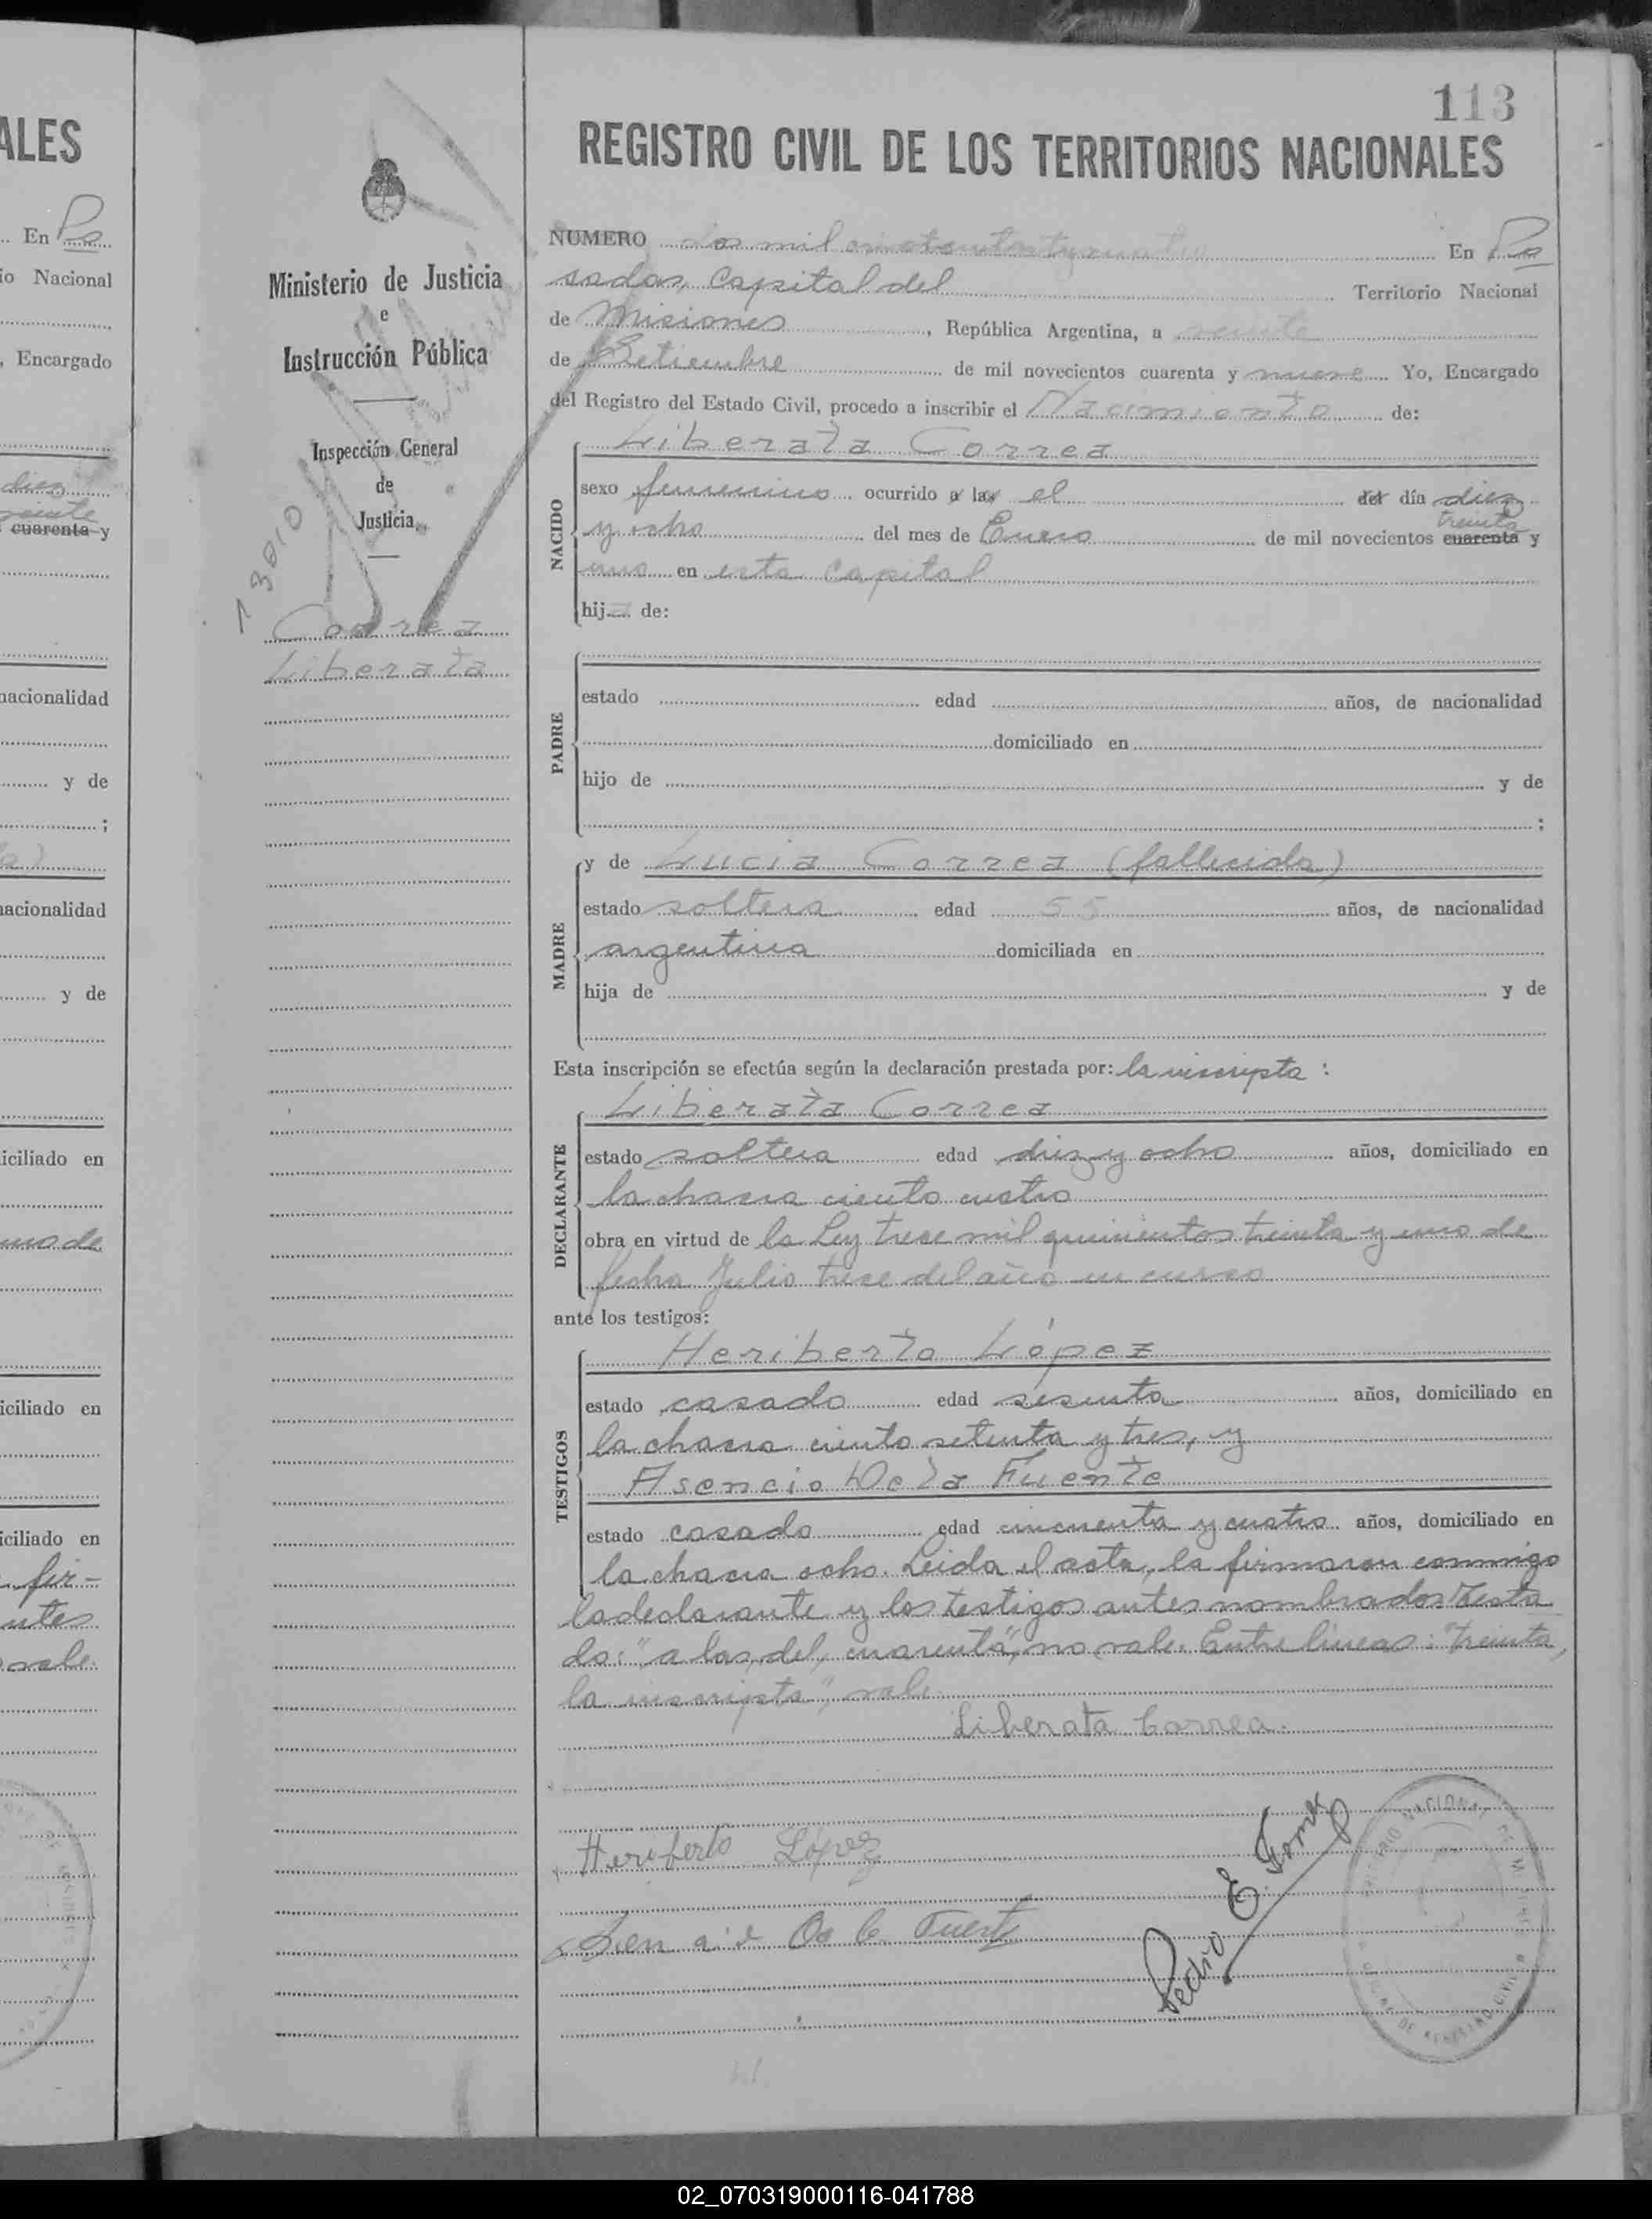 ALES
En Po
io Nacional
, Encargado
diez
treinta
cuarenta y
nacionalidad
y de
;
nacionalidad
y de
iciliado en
uno de
iciliado en
iciliado en
fir-
ntes
vale.
Ministerio de Justicia
e
Instrucción Pública
Inspección General
de
Justicia
13010
Correa
Liberata
113
REGISTRO CIVIL DE LOS TERRITORIOS NACIONALES
NUMERO dos mil En Po
sadas, Capital del Territorio Nacional
de Misiones, República Argentina, a veinte
de Setiembre de mil novecientos cuarenta y nueve Yo, Encargado
del Registro del Estado Civil, procedo a inscribir el Nacimiento de:
Liberata Correa
NACIDO
sexo femenino ocurrido a las el del día diez
y ocho del mes de Enero de mil novecientos cuarenta treinta y
uno en esta Capital
hija de:
PADRE
estado edad años, de nacionalidad
domiciliado en
hijo de y de
;
MADRE
y de Lucia Correa (fallecida)
estado soltera edad 55 años, de nacionalidad
argentina domiciliada en
hija de y de
Esta inscripción se efectúa según la declaración prestada por: la inscripta :
Liberata Correa
DECLARANTE
estado soltera edad diez y ocho años, domiciliado en
la chacra ciento cuatro
obra en virtud de la Ley trece mil quinientos treinta y uno de
fecha Julio trece del año en curso
ante los testigos:
Heriberto López
TESTIGOS
estado casado edad sesenta años, domiciliado en
la chacra ciento setenta y tres, y
Asencio De la Fuente
estado casado edad cincuenta y cuatro años, domiciliado en
la chacra ocho. Leida el acta, la firmaron conmigo
la declarante y los testigos antes nombrados Testa
do: "a las, del, cuarenta", no vale. Entre líneas: "treinta,
la inscripta", vale.
Liberata Correa.
Heriberto López
De la Fuente
Pedro E.
02_070319000116-041788